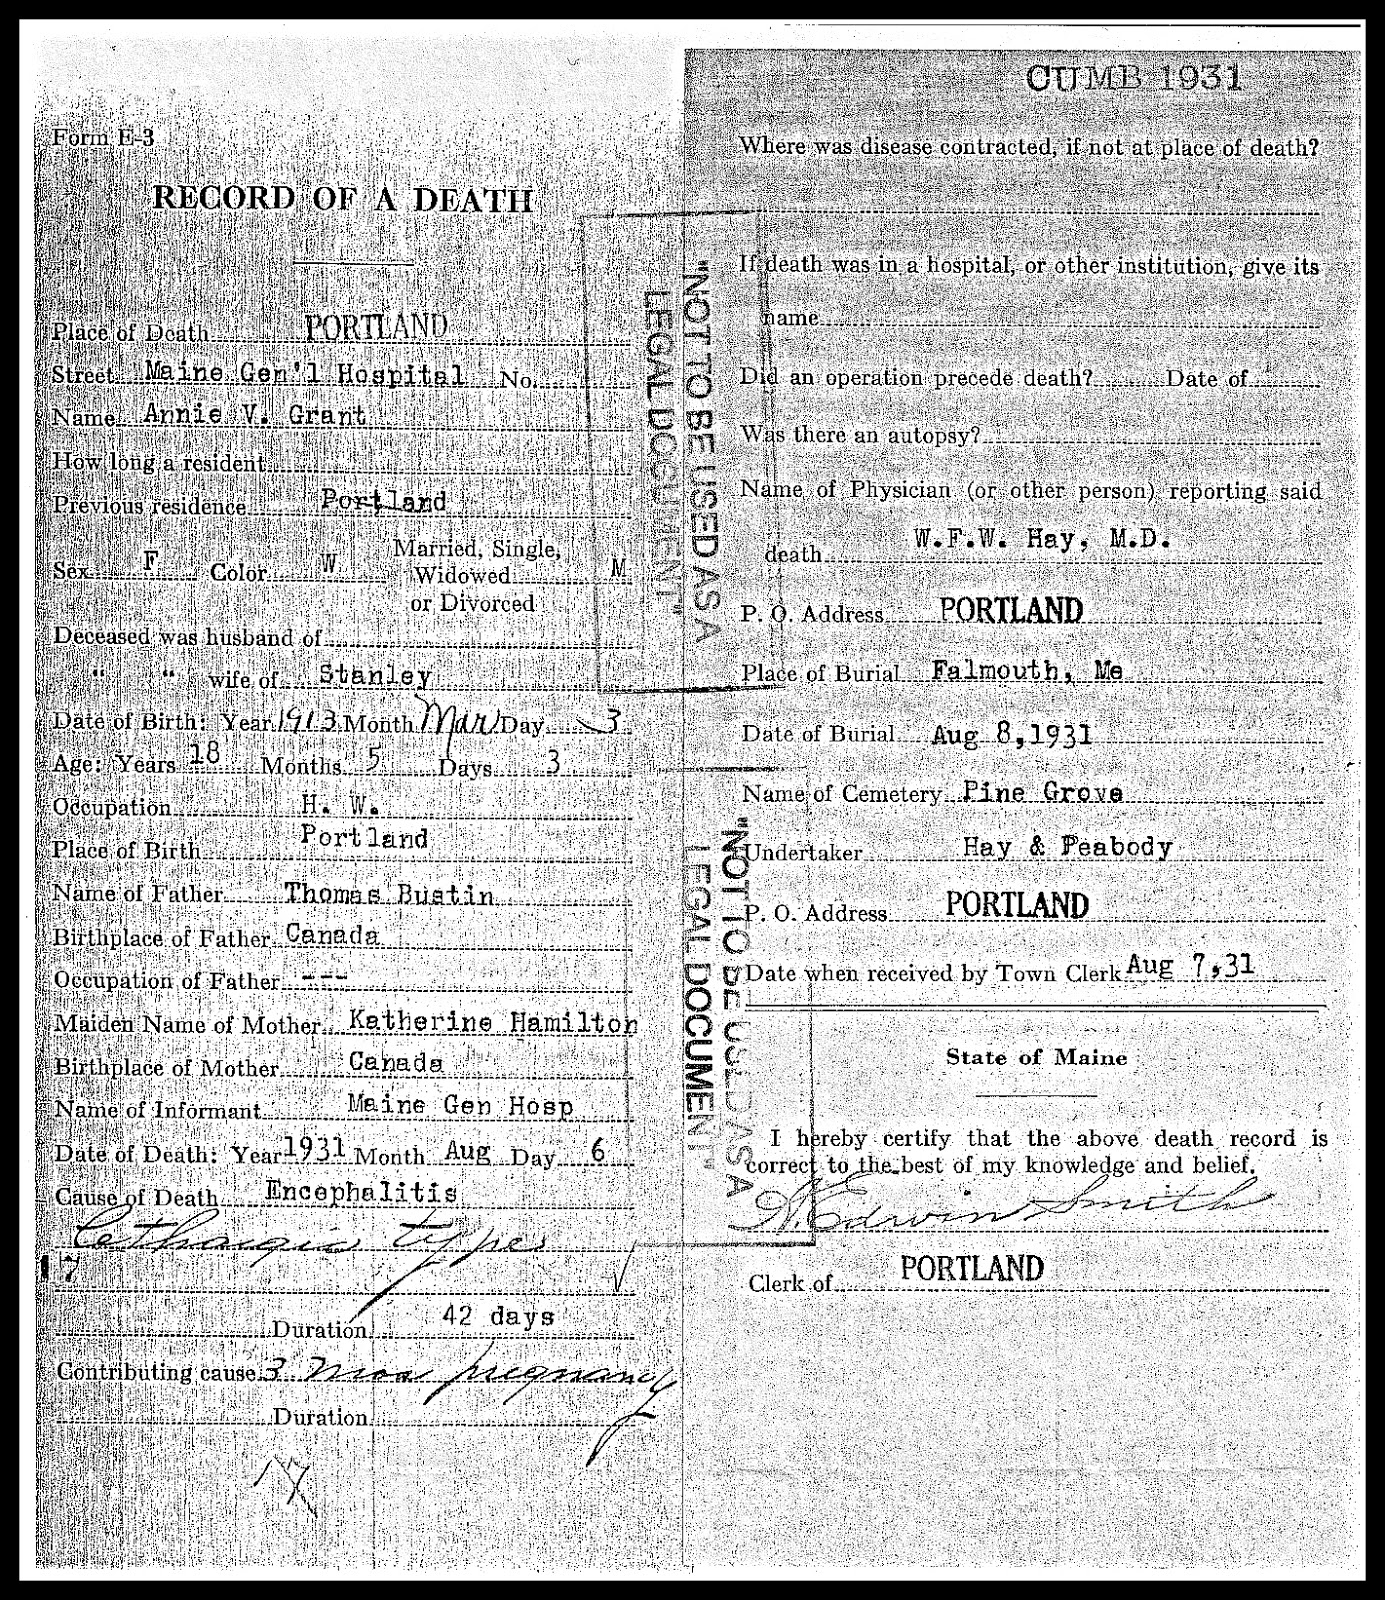 Form E-3
RECORD OF A DEATH
Place of Death PORTLAND
Street Maine Gen'l Hospital No.
Name Annie V. Grant
How long a resident
Previous residence Portland
Sex F Color W Married, Single, Widowed or Divorced M
Deceased was husband of
" " wife of Stanley
Date of Birth: Year 1913 Month Mar Day 3
Age: Years 18 Months 5 Days 3
Occupation H. W.
Place of Birth Portland
Name of Father Thomas Bustin
Birthplace of Father Canada
Occupation of Father ---
Maiden Name of Mother Katherine Hamilton
Birthplace of Mother Canada
Name of Informant Maine Gen Hosp
Date of Death: Year 1931 Month Aug Day 6
Cause of Death Encephalitis
Lethargic type
17
Duration 42 days
Contributing cause 3 mos pregnancy
Duration
"NOT TO BE USED AS A
LEGAL DOCUMENT"
"NOT TO BE USED AS A
LEGAL DOCUMENT"
CUMB 1931
Where was disease contracted, if not at place of death?
If death was in a hospital, or other institution, give its
name
Did an operation precede death? Date of
Was there an autopsy?
Name of Physician (or other person) reporting said
death W.F.W. Hay, M.D.
P. O. Address PORTLAND
Place of Burial Falmouth, Me
Date of Burial Aug 8,1931
Name of Cemetery Pine Grove
Undertaker Hay & Peabody
P. O. Address PORTLAND
Date when received by Town Clerk Aug 7,31
State of Maine
I hereby certify that the above death record is
correct to the best of my knowledge and belief.
Edwin Smith
Clerk of PORTLAND